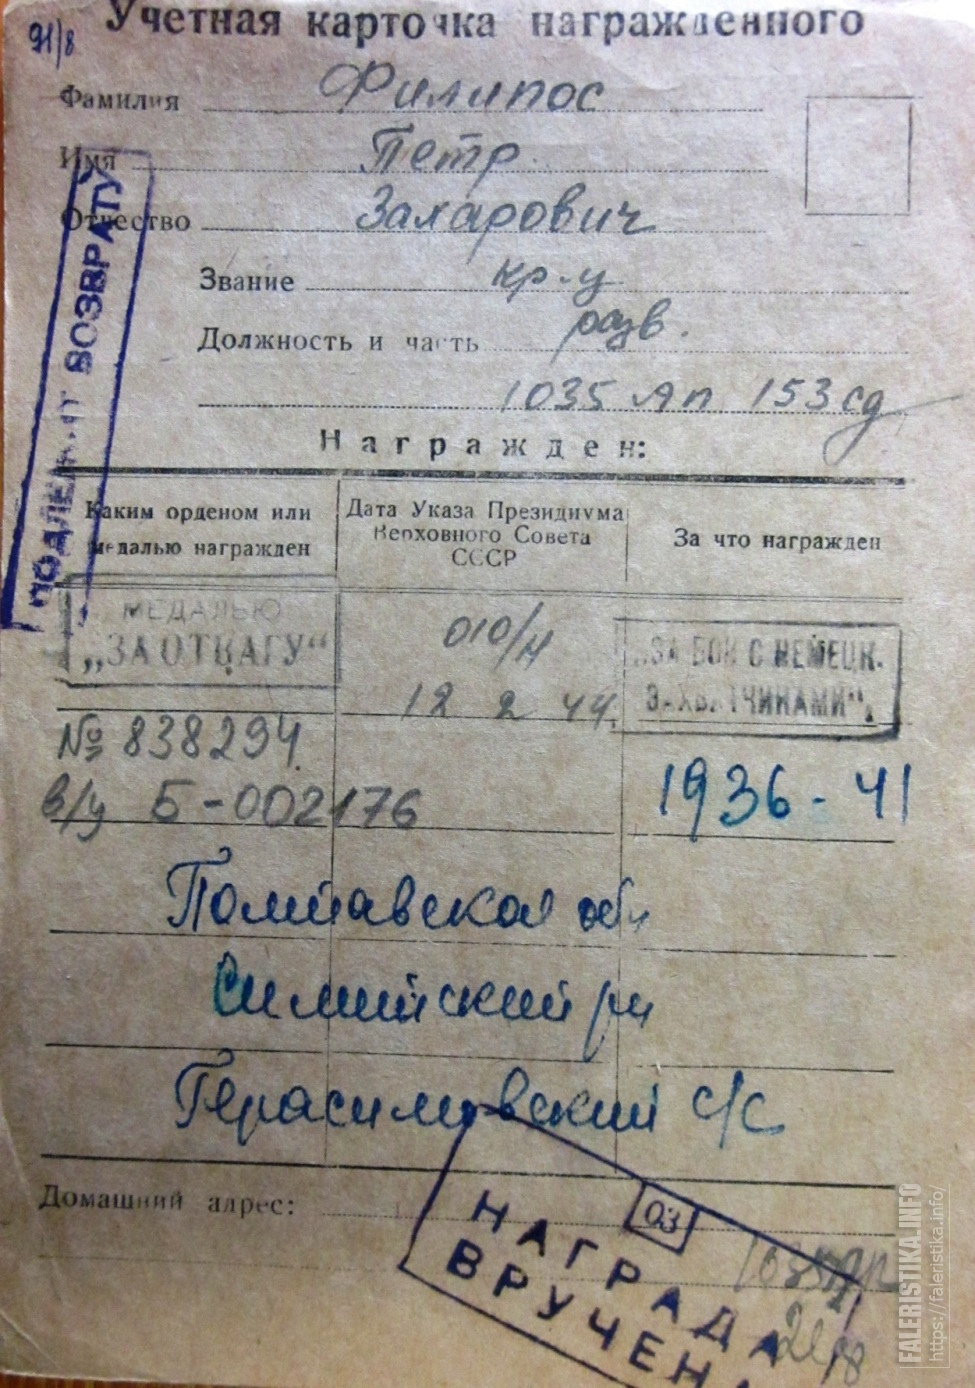 Учетная карточка награжденного
91/8
Фамилия Филипос
Имя Петр
Отчество Захарович
Звание кр-ц
Должность и часть разв.
1035 АП 153 сд
ПОДЛЕЖИТ ВОЗВРАТУ
Награжден:
Каким орденом или медалью награжден
Дата Указа Президиума Верховного Совета СССР
За что награжден
МЕДАЛЬЮ
„ЗА ОТВАГУ“
010/н
12 2 44.
„ЗА БОИ С НЕМЕЦК.
ЗАХВАТЧИКАМИ“.
№ 838294
в/у Б-002176
1936-41
Полтавская обл
Герасимовский с/с
Домашний адрес:
03
НАГРАДА
ВРУЧЕНА
FALERISTIKA.INFO
https://faleristika.info/